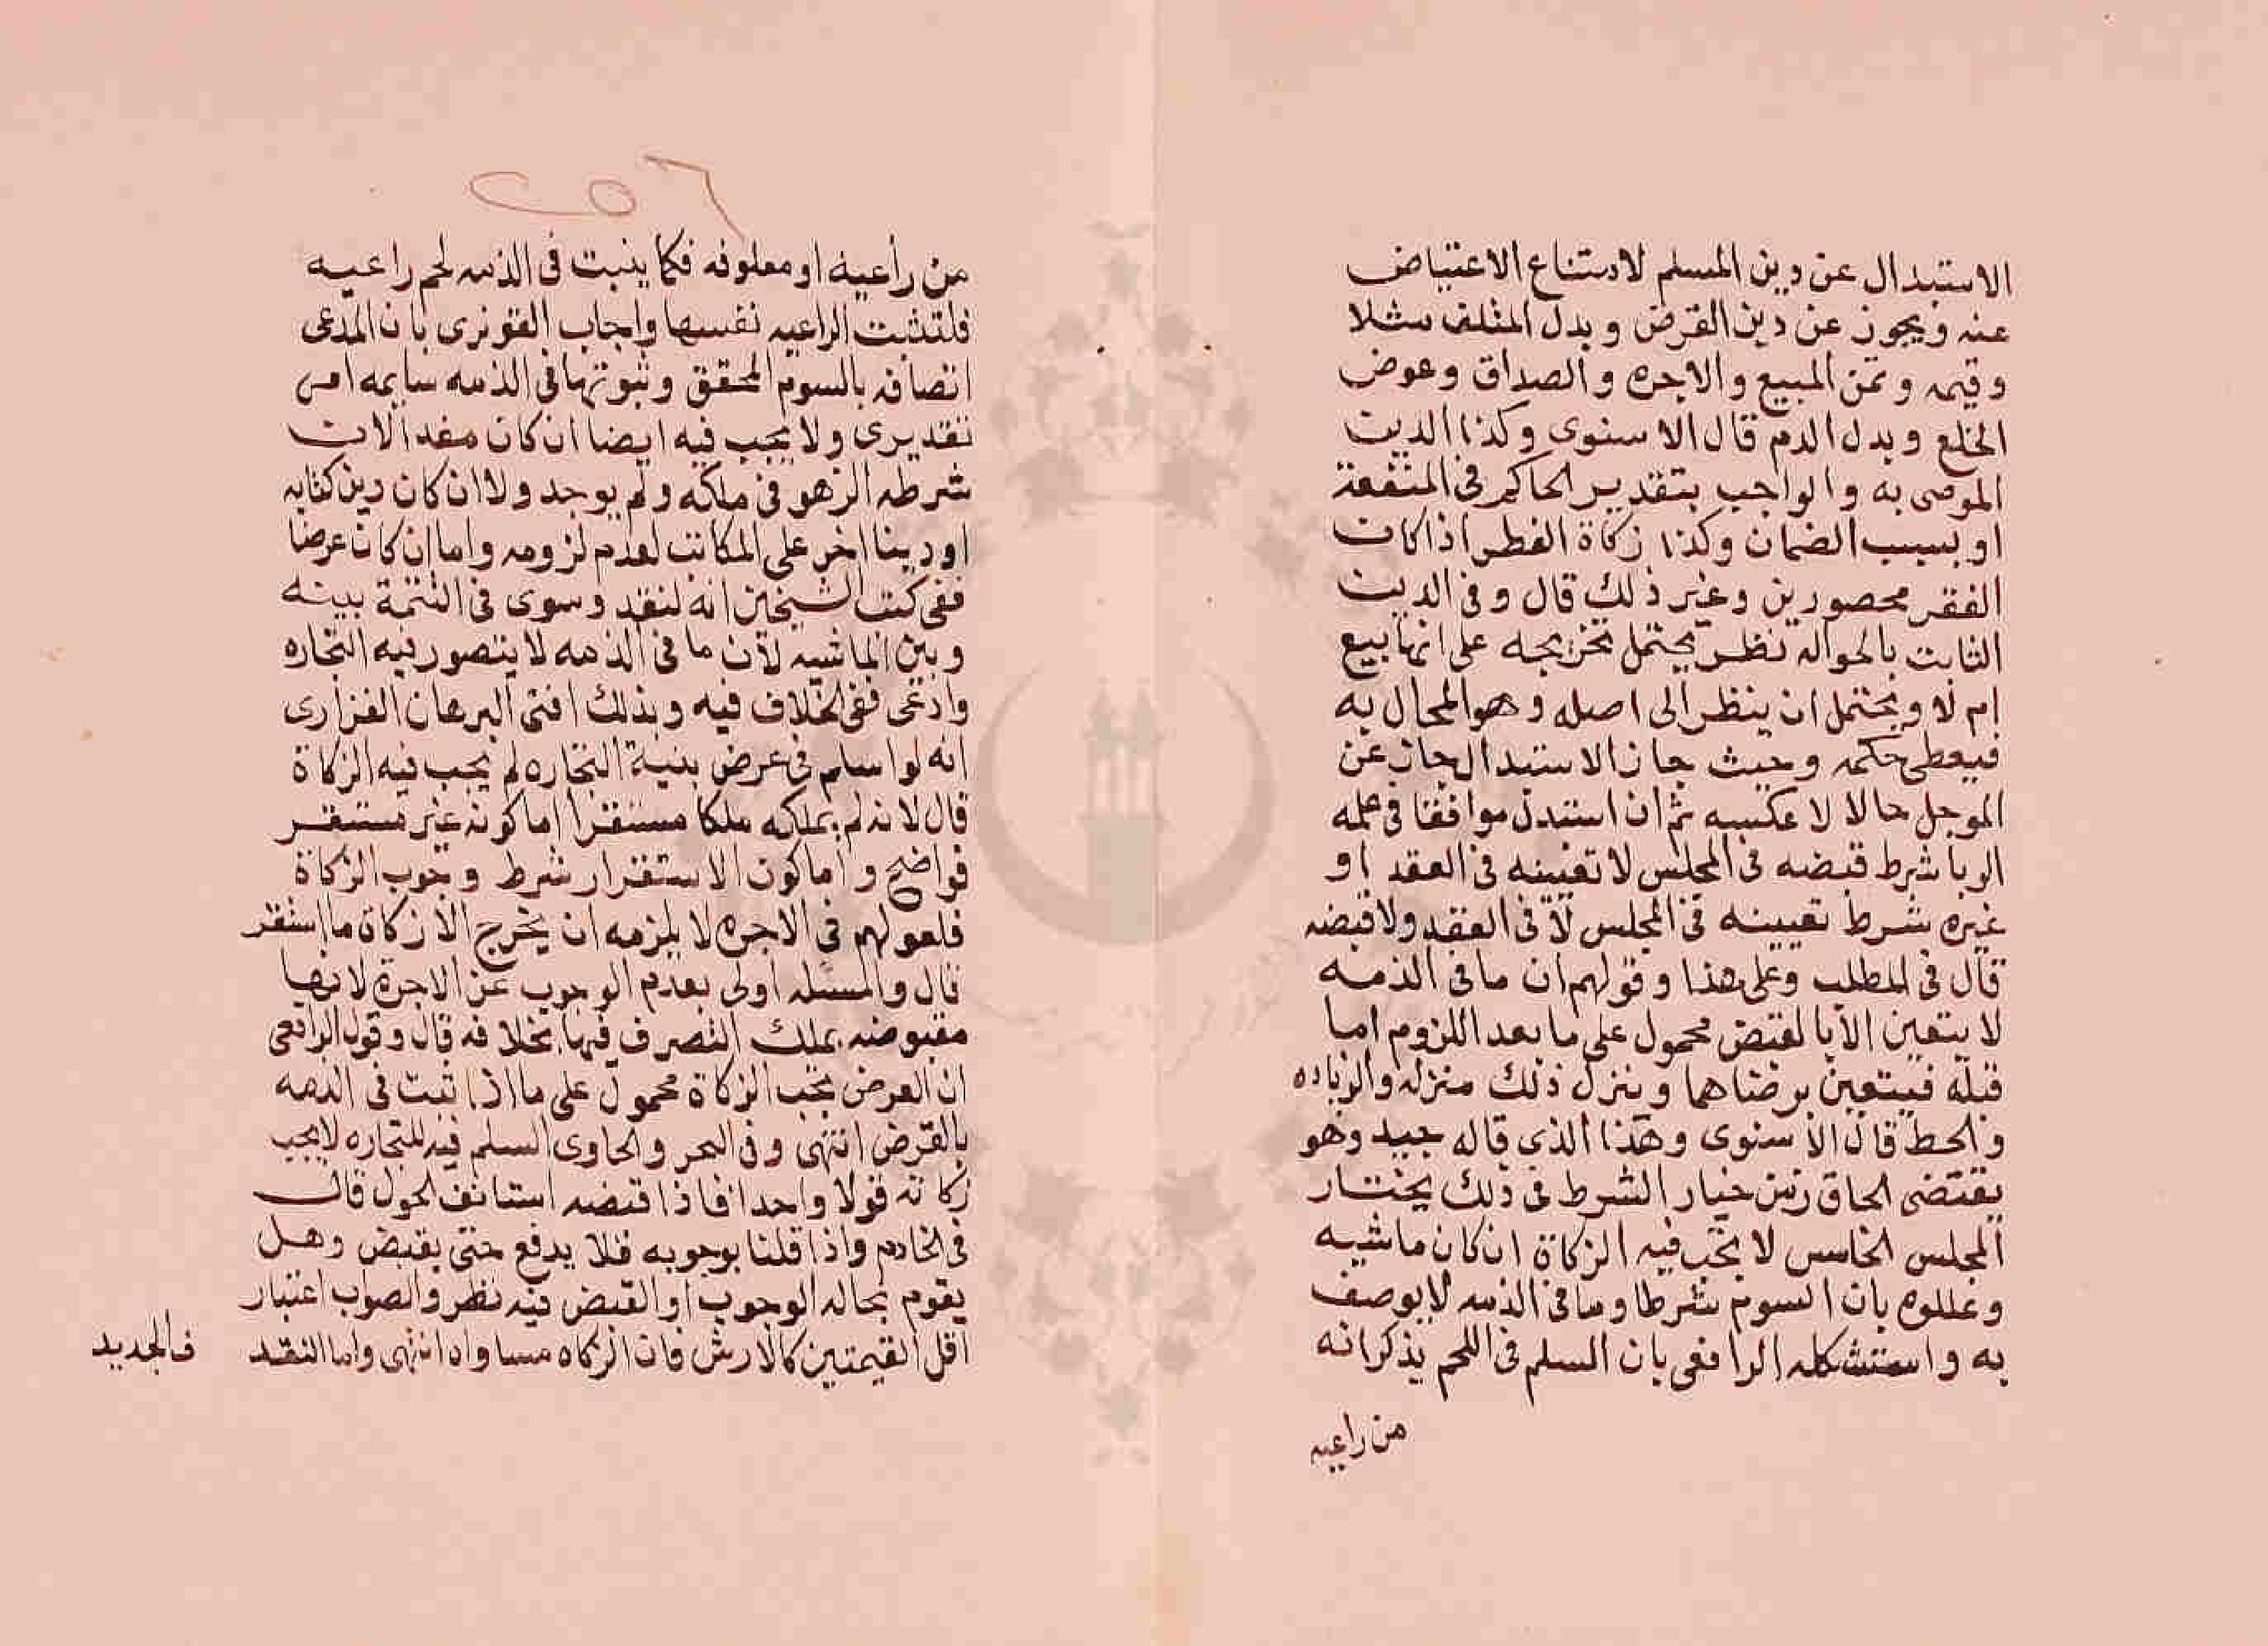 الاستبدال عن دين المسلم لامتناع الاعتياض
عنه ويجوز عن دين القرض وبدل المتلف مثلا
وقيمه وثمن المبيع والاجره والصداق وعوض
الخلع وبدل الدم قال الاسنوى وكذا الدين
الموصى به والواجب بتقدير الحاكم فى المتفعة
او بسبب الضمان وكذا زكاة الفطر اذا كان
الفقر محصورين وغير ذلك قال وفى الدين
الثابت بالحواله نظر يحتمل تخريجه على انها بيع
ام لا ويحتمل ان ينظر الى اصله وهو المحال به
فيعطى حكمه وحيث جاز الاستبدال جاز عن
الموجل حالا لا عكسه ثم ان استبدل موافقا فى علمه
الربا شرط قبضه فى المجلس لا تعيينه فى العقد او
غيره شرط تعيينه فى المجلس لا فى العقد ولا قبضه
قال فى المطلب وعلى هذا وقولهم ان ما فى الذمه
لا يتعين الا بالقبض محمول على ما بعد اللزوم اما
قبله فيتعين برضاهما وينزل ذلك منزله والزياده
والحط قال الاسنوى وهذا الذى قاله جيد وهو
يقتضى الحاق زمن خيار الشرط فى ذلك بخيار
المجلس الخامس لا تجب فيه الزكاة ان كان ماشيه
وعللوه بان السوم شرطا وما فى الذمه لا يوصف
به واستشكله الرافعى بان السلم فى اللحم يذكر انه
من راعيه
٢٥٦
من راعية او معلوفه فكما يثبت فى الذمه لحم راعيه
فلتثبت الراعيه نفسها واجاب القونوى بان المدعى
اتصافه بالسوم المحقق وثبوتها فى الذمه سايمه امر
تقديرى ولا يجب فيه ايضا ان كان مفدا لان
شرطه الزهو فى ملكه ولم يوجد ولا ان كان دين كتابه
او دينا اخر على المكاتب لعدم لزومه واما ان كان عرضا
ففى كتب الشيخين انه لنقد وسوى فى التتمة بينه
وبين الماشيه لان ما فى الذمه لا يتصور فيه التجاره
وادعى نفى الخلاف فيه وبذلك افتى البرهان الفزارى
انه لو اسلم فى عرض بنية التجاره لم يجب فيه الزكاة
قال لانه لم يملكه ملكا مستقرا اما كونه غير مستقر
فواضح واما كون الاستقرار شرط وجوب الزكاة
فلقولهم فى الاجره لا يلزمه ان يخرج الا زكاة ما استقر
قال والمسئله اولى بعدم الوجوب عن الاجرة لانها
مقبوضه يملك التصرف فيها بخلافه قال وقول الرافعى
ان العرض تجب الزكاة محمول على ما اذا ثبت فى الذمه
بالقرض انتهى وفى البحر والحاوى السلم فيه للتجاره لا يجب
زكاته قولا واحدا فاذا قبضه استانف الحول قال
فى الخادم واذا قلنا بوجوبه فلا يدفع حتى يقبض وهل
يقوم بحاله الوجوب او القبض فيه نظر والصوب اعتبار
اقل القيمتين كالارش فان الزكاه مساواه انتهى واما النقد
فالجديد